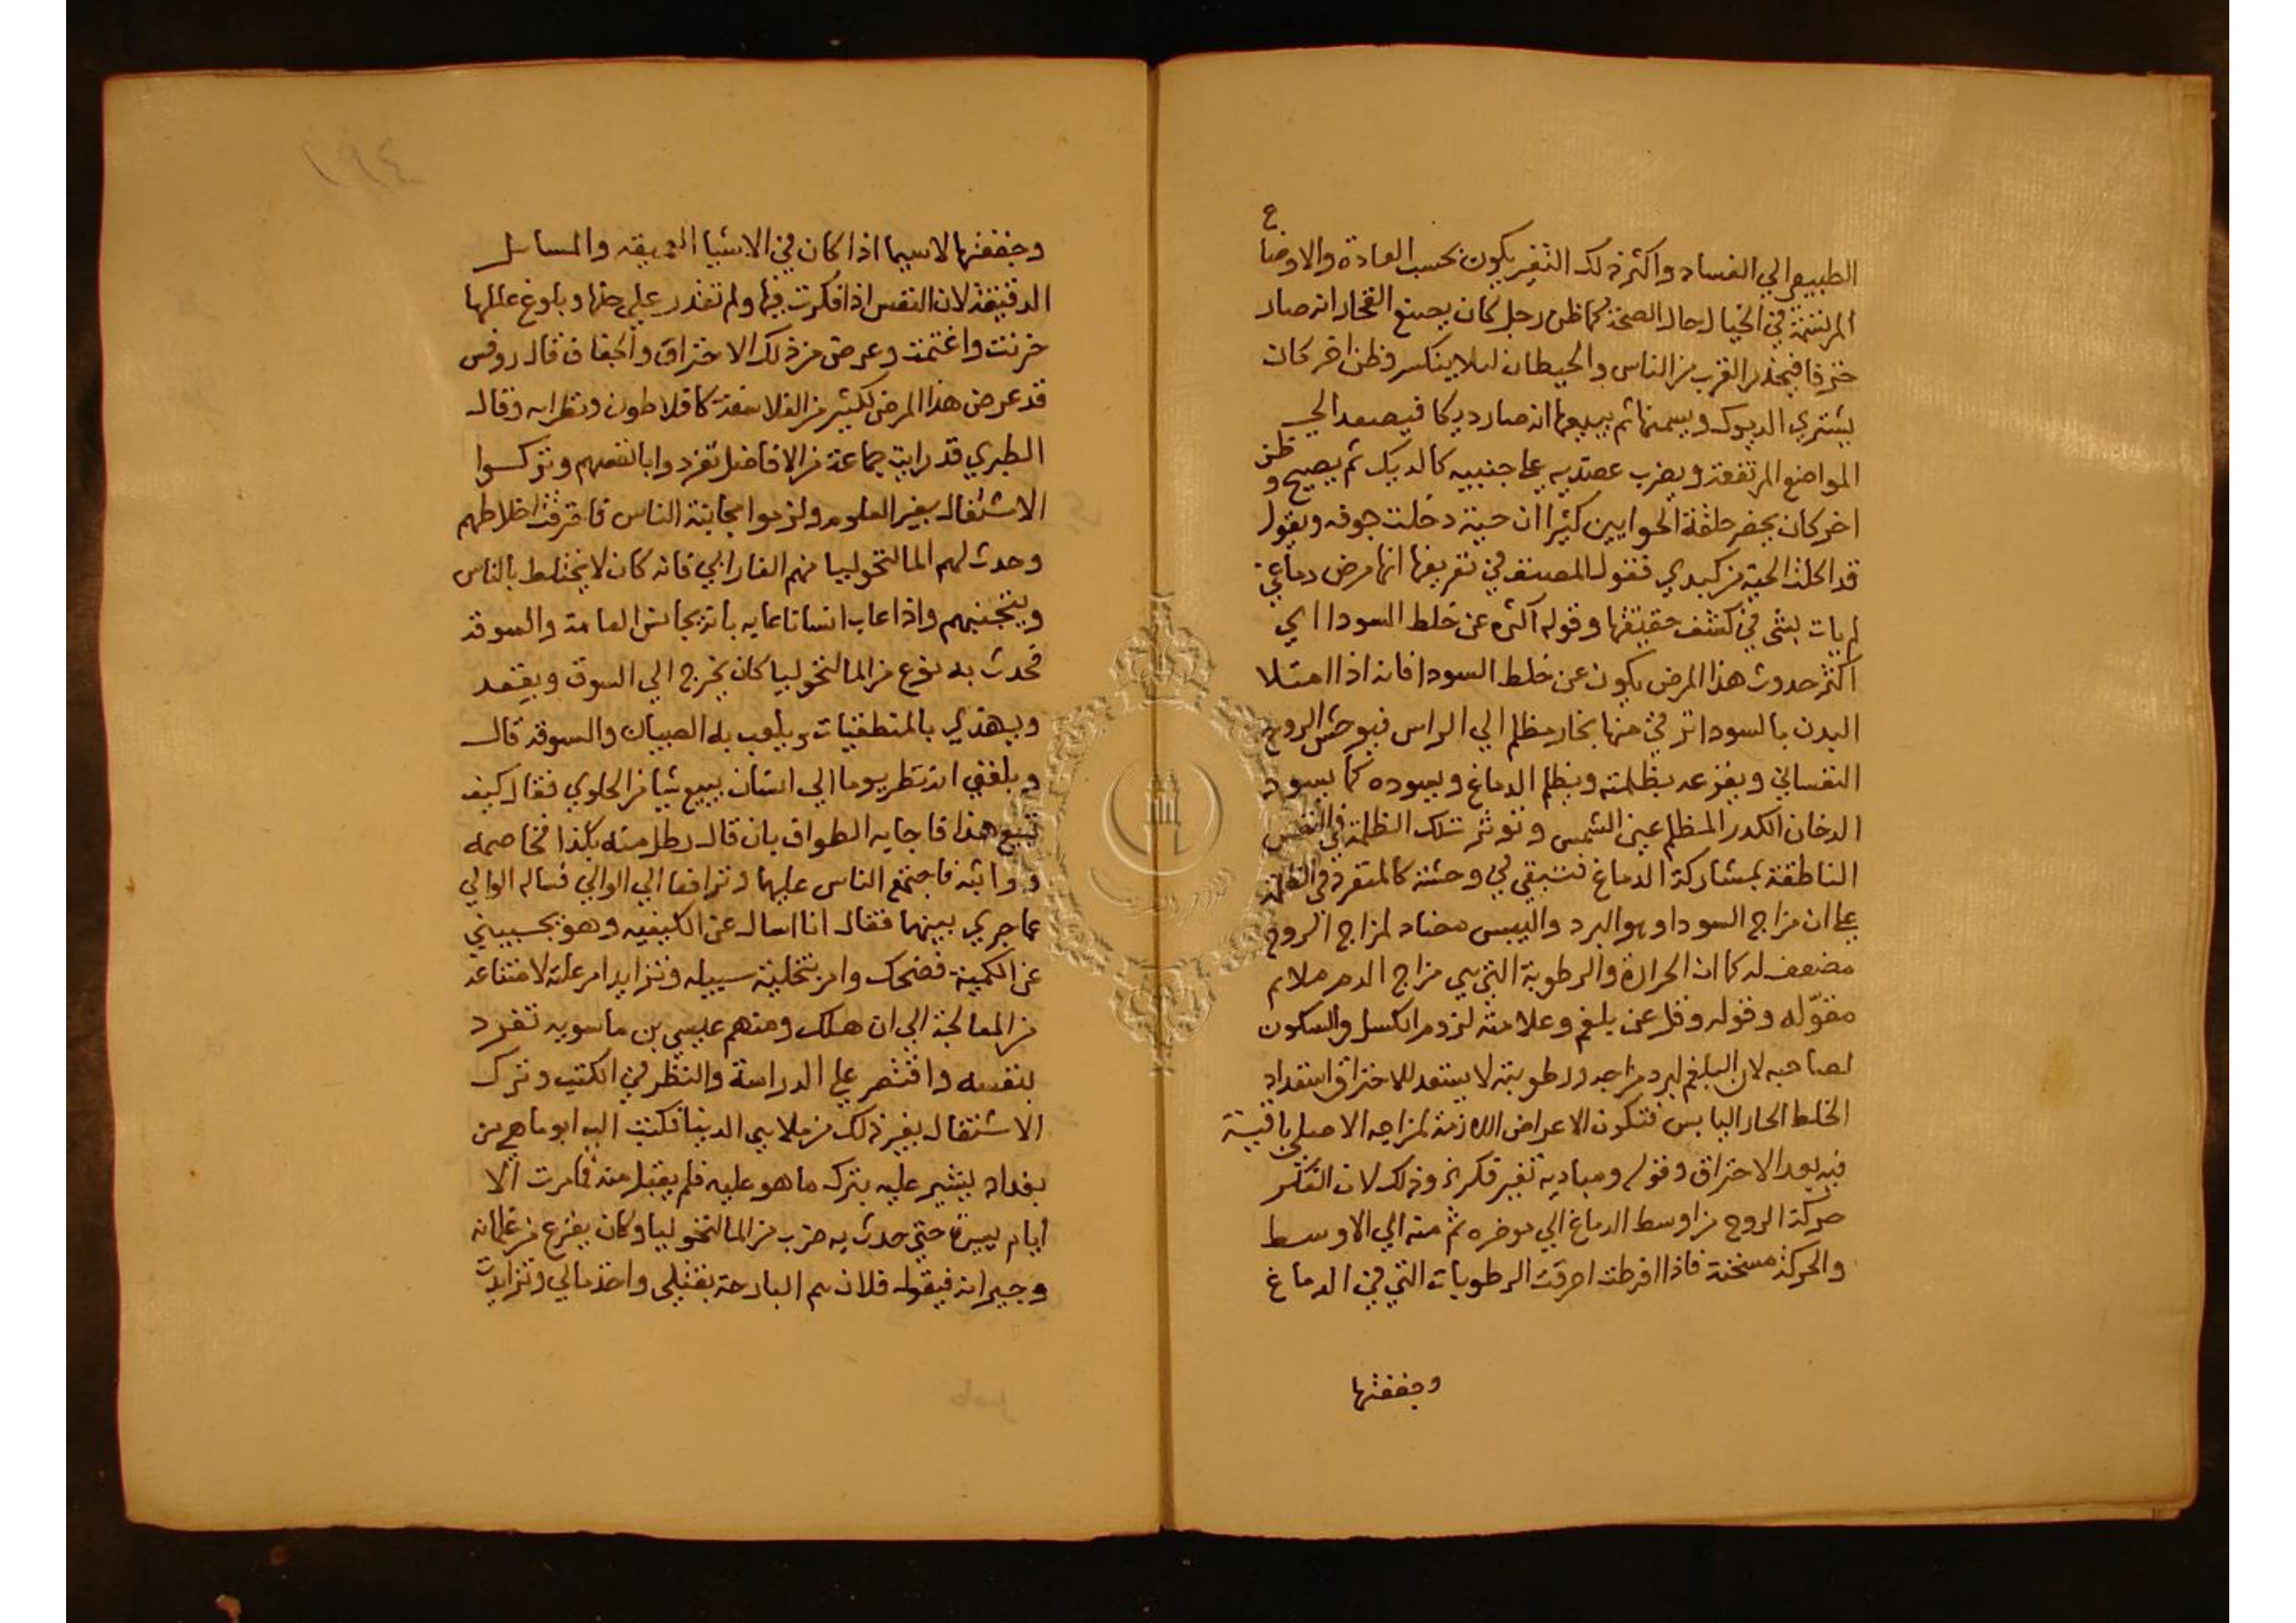 الطبيعي الي الفساد واكثر ذلك التغير يكون بحسب العادة والاوضاع
المرتسمة في الخيال حال الصحة كما ظن رجل كان يصنع الفخار انه صار
خزفا فيحذر القرب من الناس والحيطان ليلا ينكسر وظن اخر كان
يشتري الديوك ويسمنها ثم يبيعها انه صار ديكا فيصعد الي
المواضع المرتفعة ويضرب عضديه علي جنبيه كالديك ثم يصيح وظن
اخر كان يحضر حلقة الحوايين كثيرا ان حية دخلت جوفه ويقول
قد اكلت الحية من كبدي فقول المصنف في تعريفها انها مرض دماغي
لم يات بشي في كشف حقيقتها وقوله اكثره عن خلط السودا اي
اكثر حدوث هذا المرض يكون عن خلط السودا فانه اذا امتلا
البدن بالسودا ترقي منها بخار مظلم الي الراس فيوحش الروح
النفساني ويفزعه بظلمته ويظلم الدماغ ويسوده كما يسود
الدخان الكدر المظلم عين الشمس وتوثر تلك الظلمة في النفس
الناطقة بمشاركة الدماغ فتبقي في وحشة كالمتفرد في الظلمة
علي ان مزاج السودا وهو البرد واليبس مضاد لمزاج الروح
مضعف له كما ان الحرارة والرطوبة التي هي مزاج الدم ملايم
مقوّ له وقوله وقل عن بلغم وعلامته لزوم الكسل والسكون
لصاحبه لان البلغم لبرد مزاجه ورطوبته لا يستعد للاحتراق استعداد
الخلط الحار اليابس فتكون الاعراض اللازمة لمزاجه الاصلي باقية
فيه بعد الاحتراق وقوله ومباديه تغير فكر وذلك لان الفكر
حركة الروح من اوسط الدماغ الي موخره ثم منه الي الاوسط
والحركة مسخنة فاذا افرطت احرقت الرطوبات التي في الدماغ
وجففتها
وجففتها لاسيما اذا كان في الاشيا العميقه والمسايل
الدقيقة لان النفس اذا فكرت فيها ولم تقدر علي حلها وبلوغ عللها
حزنت واغتمت وعرض من ذلك الاحتراق والجفاف قال روفس
قد عرض هذا المرض لكثير من الفلاسفة كافلاطون ونظرايه وقال
الطبري قد رايت جماعة من الافاضل تفردوا بانفسهم وتركوا
الاشتغال بغير العلوم ولزموا مجانبة الناس فاحترقت اخلاطهم
وحدث لهم المالنخوليا منهم الفارابي فانه كان لا يختلط بالناس
ويتجنبهم واذا عاب انسانا عابه بانه يجانس العامة والسوقة
فحدث به نوع من المالنخوليا كان يخرج الي السوق ويقعد
ويهذي بالمنطقيات ويلعب به الصبيان والسوقة قال
وبلغني انه نظر يوما الي انسان يبيع شيا من الحلوي فقال كيف
تبيع هذا فاجابه الطواف بان قال رطل منه بكذا فخاصمه
وواثبه فاجتمع الناس عليهما وترافعا الي الوالي فساله الوالي
عما جري بينهما فقال انا اسال عن الكيفيه وهو يجيبني
عن الكمية فضحك وامر بتخلية سبيله وتزايد امر علته لامتناعه
من المعالجة الي ان هلك ومنهم عيسي بن ماسويه تفرد
بنفسه واقتصر علي الدراسة والنظر في الكتب وترك
الاشتغال بغير ذلك من ملاهي الدنيا فكتب اليه ابو ماهر من
بغداد يشير عليه بترك ما هو عليه فلم يقبل منه فما مرت الا
ايام يسيرة حتي حدث به ضرب من المالنخوليا وكان يفزع من غلمانه
وجيرانه فيقول فلان هم البارحة بقتلي واخذ مالي وتزايدت